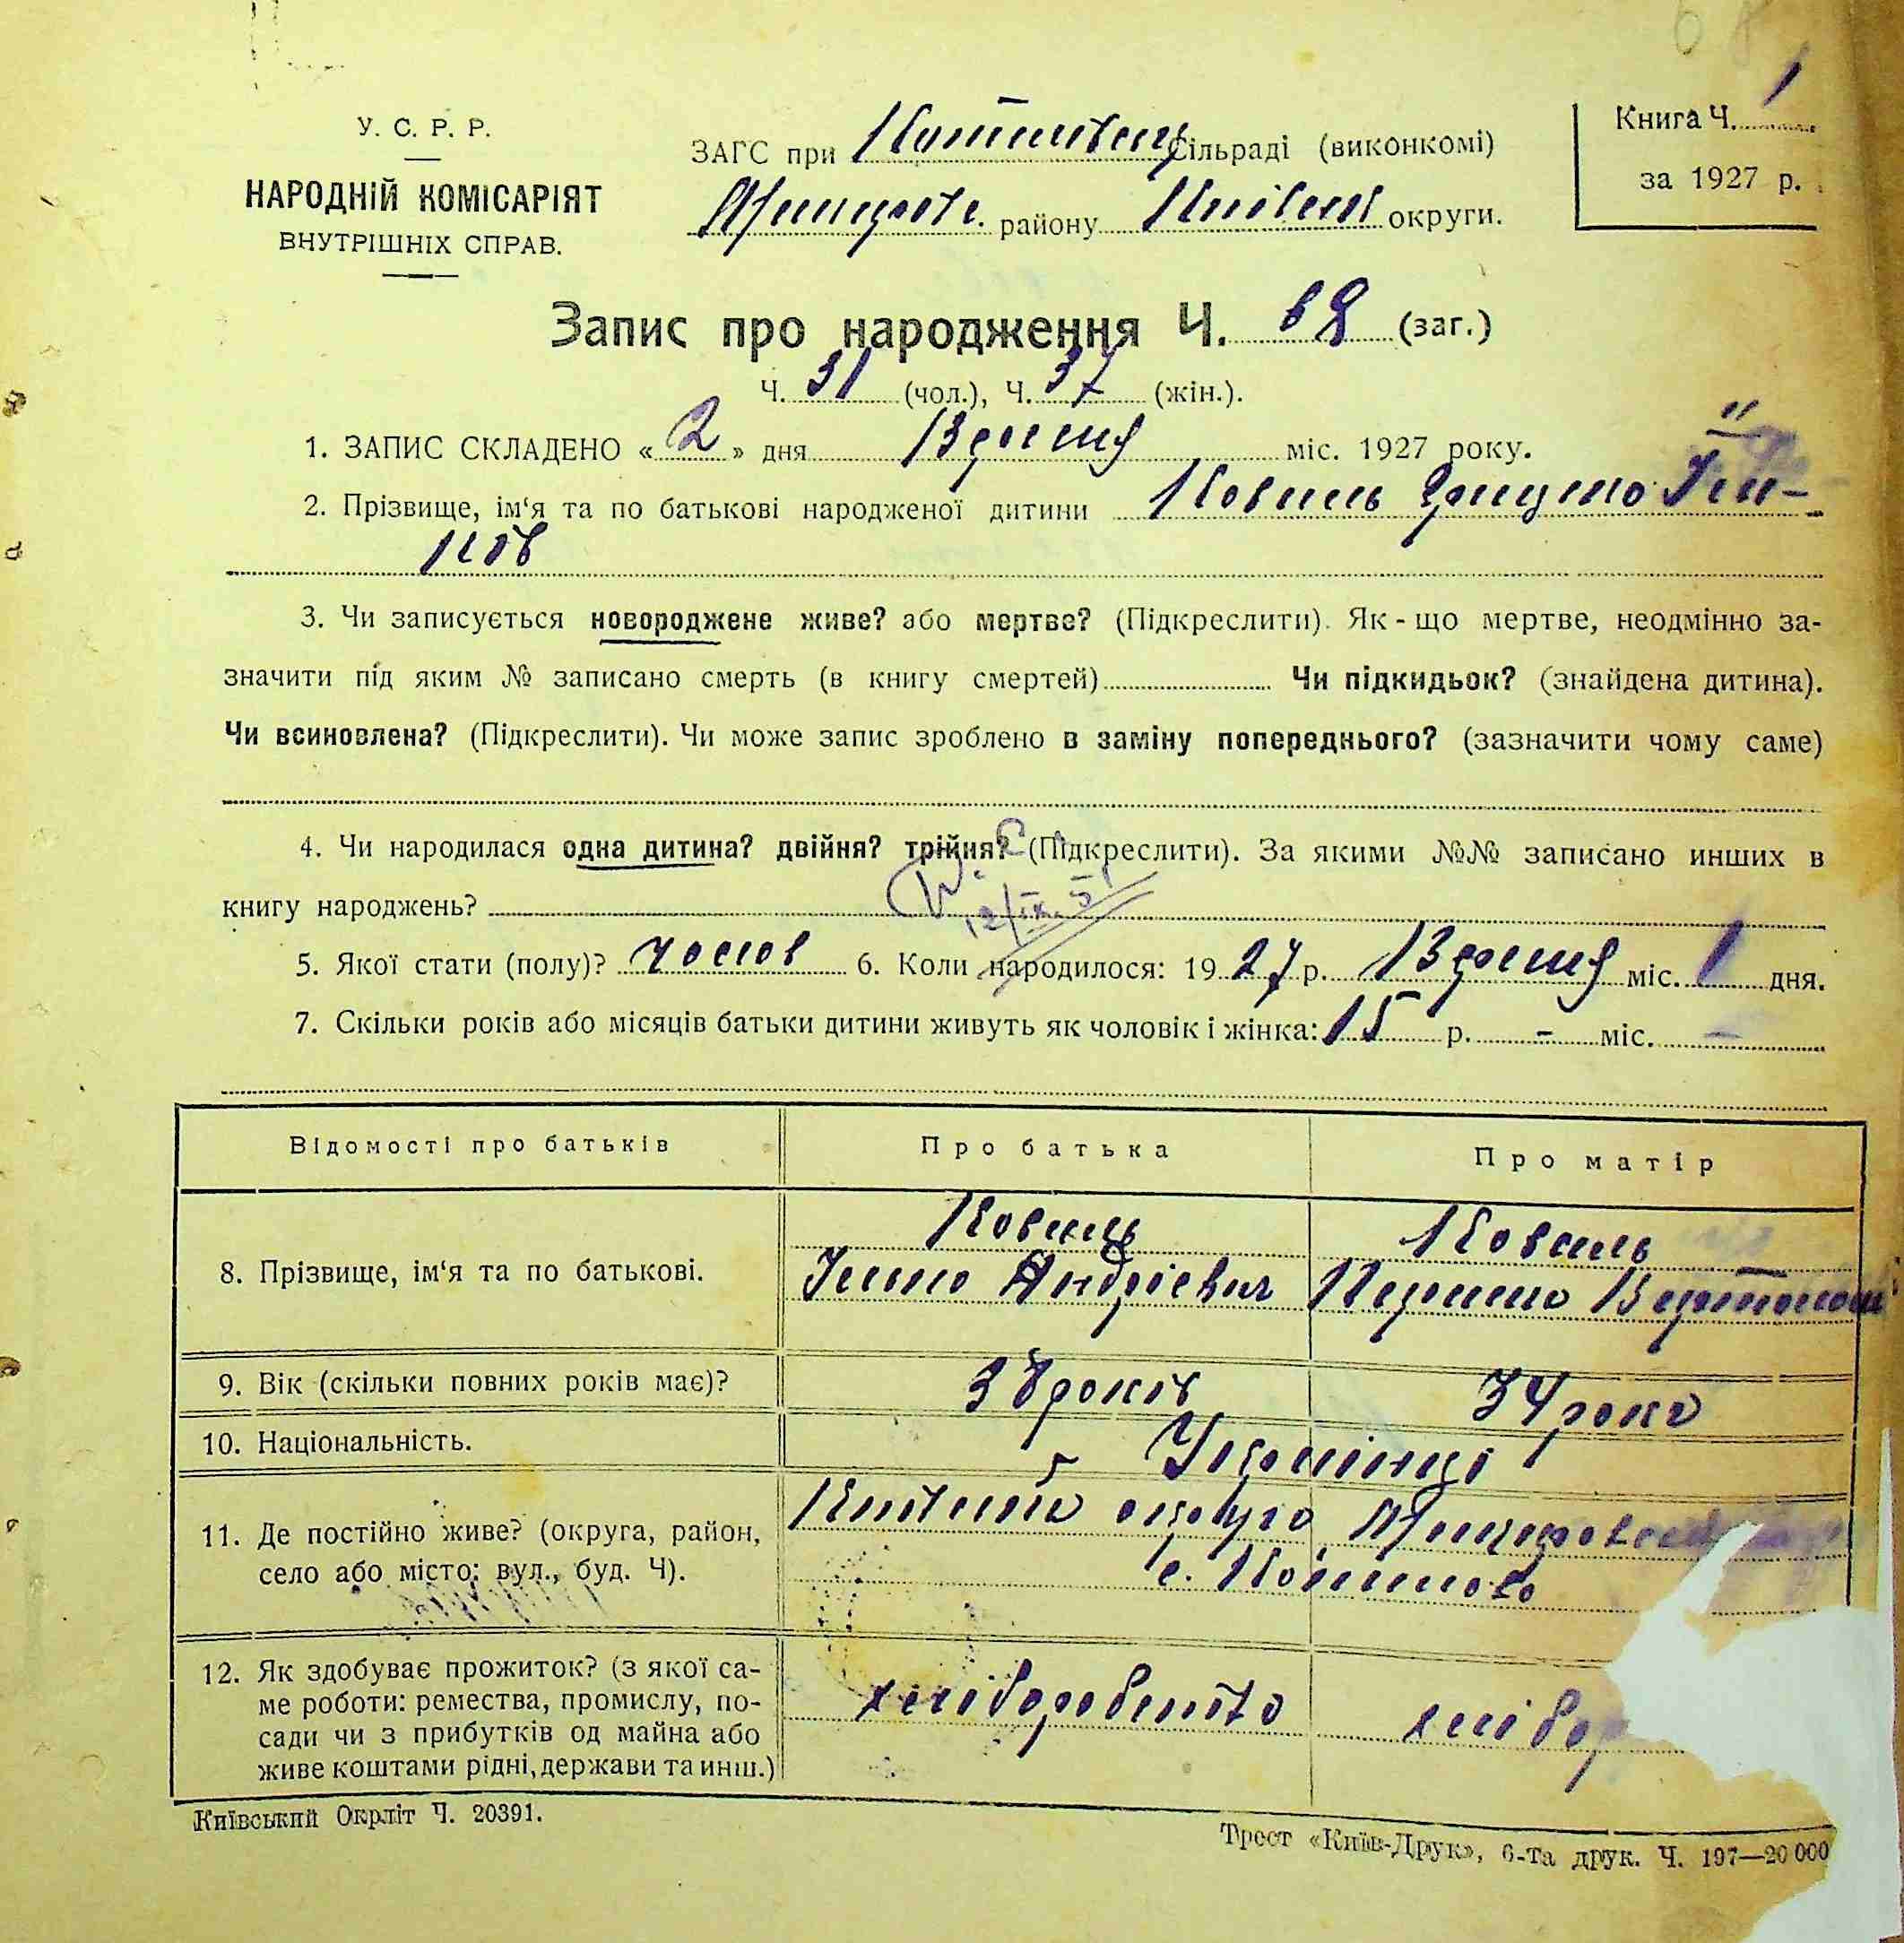 У. С. Р. Р.
НАРОДНІЙ КОМІСАРІЯТ
ВНУТРІШНІХ СПРАВ.
ЗАГС при сільраді (виконкомі)
району округи.
Книга Ч. 1
за 1927 р.
Запис про народження Ч. 68 (заг.)
Ч. 31 (чол.), Ч. 37 (жін.).
1. ЗАПИС СКЛАДЕНО « 2 » дня Вересня міс. 1927 року.
2. Прізвище, ім‘я та по батькові народженої дитини Коваль
3. Чи записується новороджене живе? або мертве? (Підкреслити). Як-що мертве, неодмінно за-
значити під яким № записано смерть (в книгу смертей) Чи підкидьок? (знайдена дитина).
Чи всиновлена? (Підкреслити). Чи може запис зроблено в заміну попереднього? (зазначити чому саме)
4. Чи народилася одна дитина? двійня? трійня? (Підкреслити). За якими №№ записано инших в
книгу народжень?
5. Якої стати (полу)? чолов 6. Коли народилося: 1927 р. Вересня міс. 1 дня.
7. Скільки років або місяців батьки дитини живуть як чоловік і жінка: 15 р. - міс. -
Відомості про батьків Про батька Про матір
8. Прізвище, ім‘я та по батькові. Коваль Коваль
Андрієвич
9. Вік (скільки повних років має)? 38 років 34 роки
10. Національність. Українці
11. Де постійно живе? (округа, район,
село або місто; вул., буд. Ч).
с.
12. Як здобуває прожиток? (з якої са-
ме роботи: ремества, промислу, по-
сади чи з прибутків од майна або
живе коштами рідні, держави та инш.)
хліборобство хлібор
Київський Окрліт Ч. 20391.
Трест «Київ-Друк», 6-та друк. Ч. 197—20 000